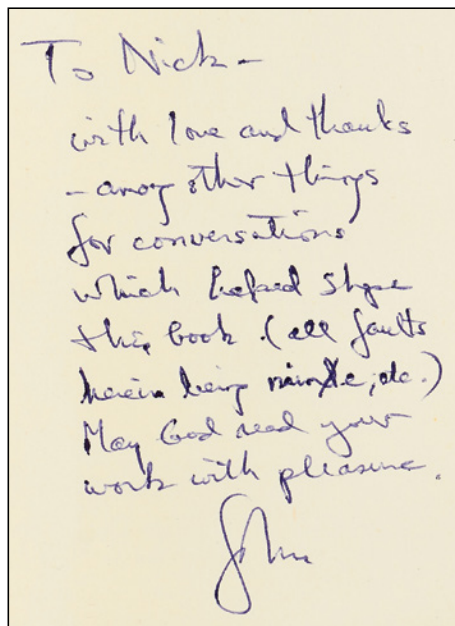 To Nick –
with love and thanks
– among other things
for conversations
which helped shape
this book. (all faults
herein being mine, etc.)
May God read your
work with pleasure.
John